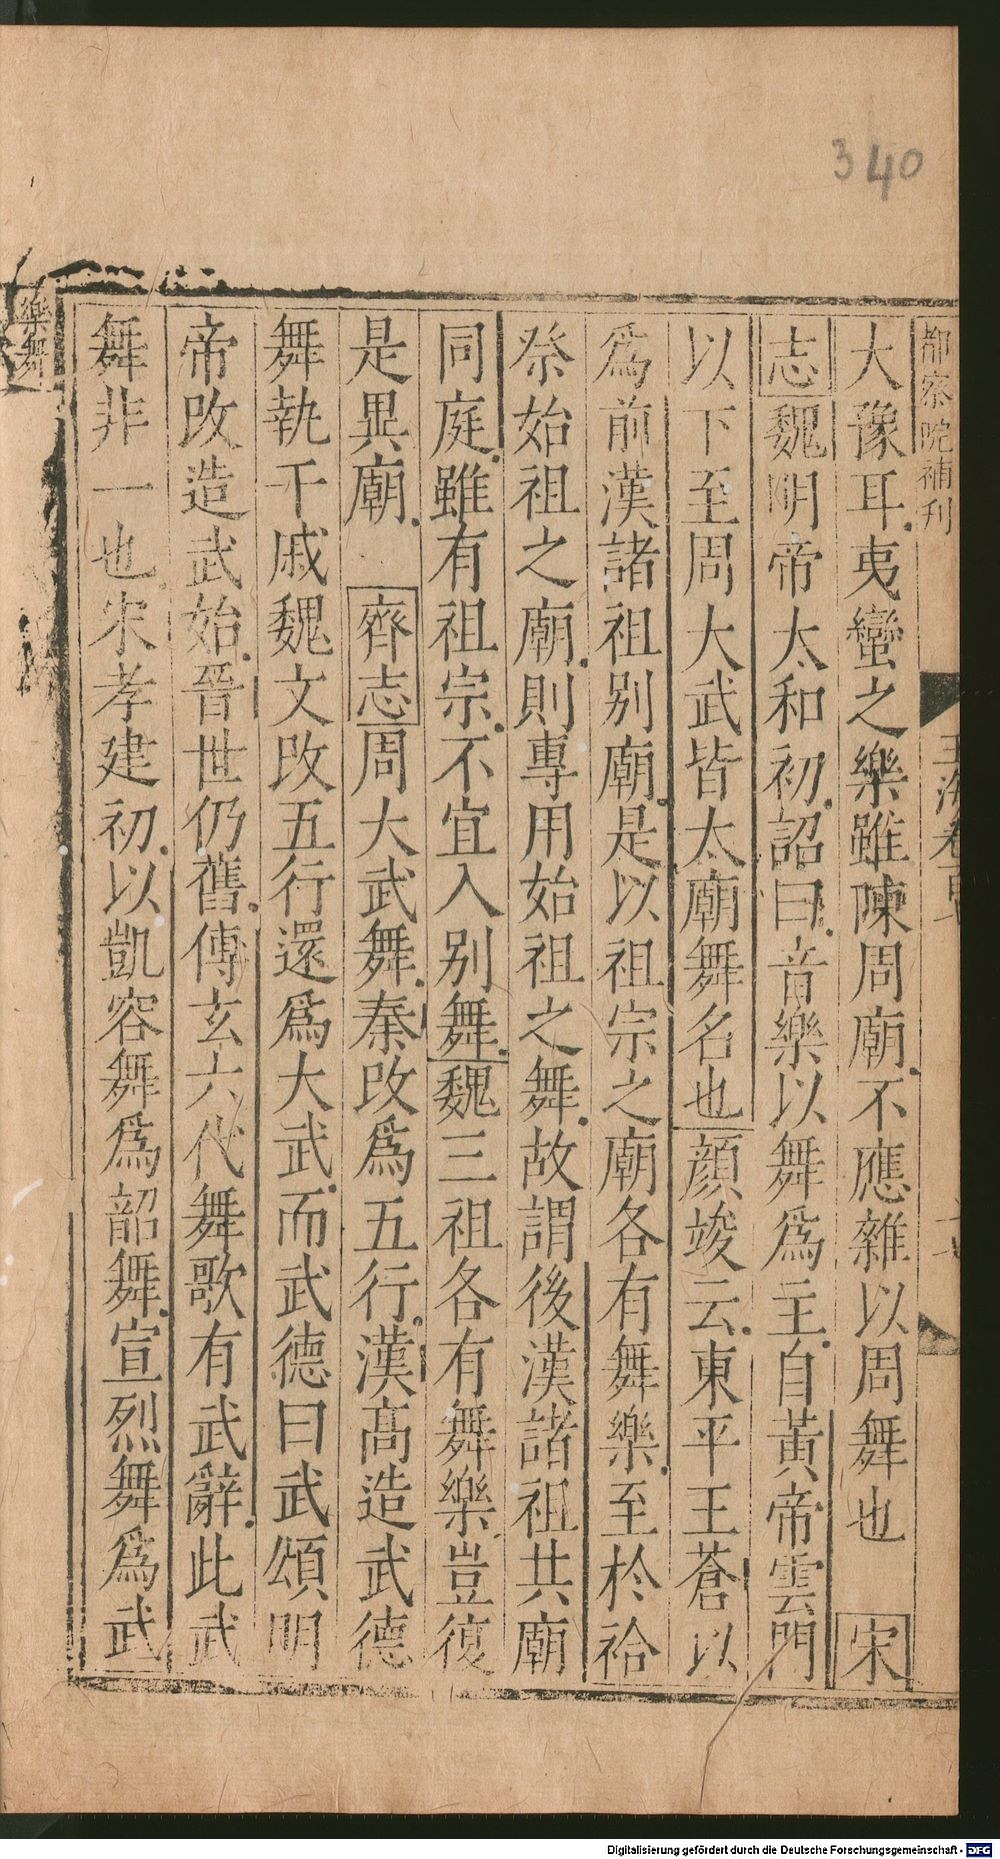 340
都察院補刊
玉海卷百七
大豫耳夷蠻之樂雖陳周廟不應雜以周舞也 宋
志魏明帝太和初詔曰音樂以舞爲主自黃帝雲門
以下至周大武皆太廟舞名也顔竣云東平王蒼以
爲前漢諸祖别廟是以祖宗之廟各有舞樂至於祫
祭始祖之廟則專用始祖之舞故謂後漢諸祖共廟
同庭雖有祖宗不宜入别舞魏三祖各有舞樂豈復
是異廟 齊志周大武舞秦改爲五行漢髙造武德
舞執干戚魏文改五行還爲大武而武德曰武頌明
帝改造武始晉世仍舊傅玄六代舞歌有武辭此武
舞非一也宋孝建初以凱容舞爲韶舞宣烈舞爲武
樂舞
Digitalisierung gefördert durch die Deutsche Forschungsgemeinschaft - DFG